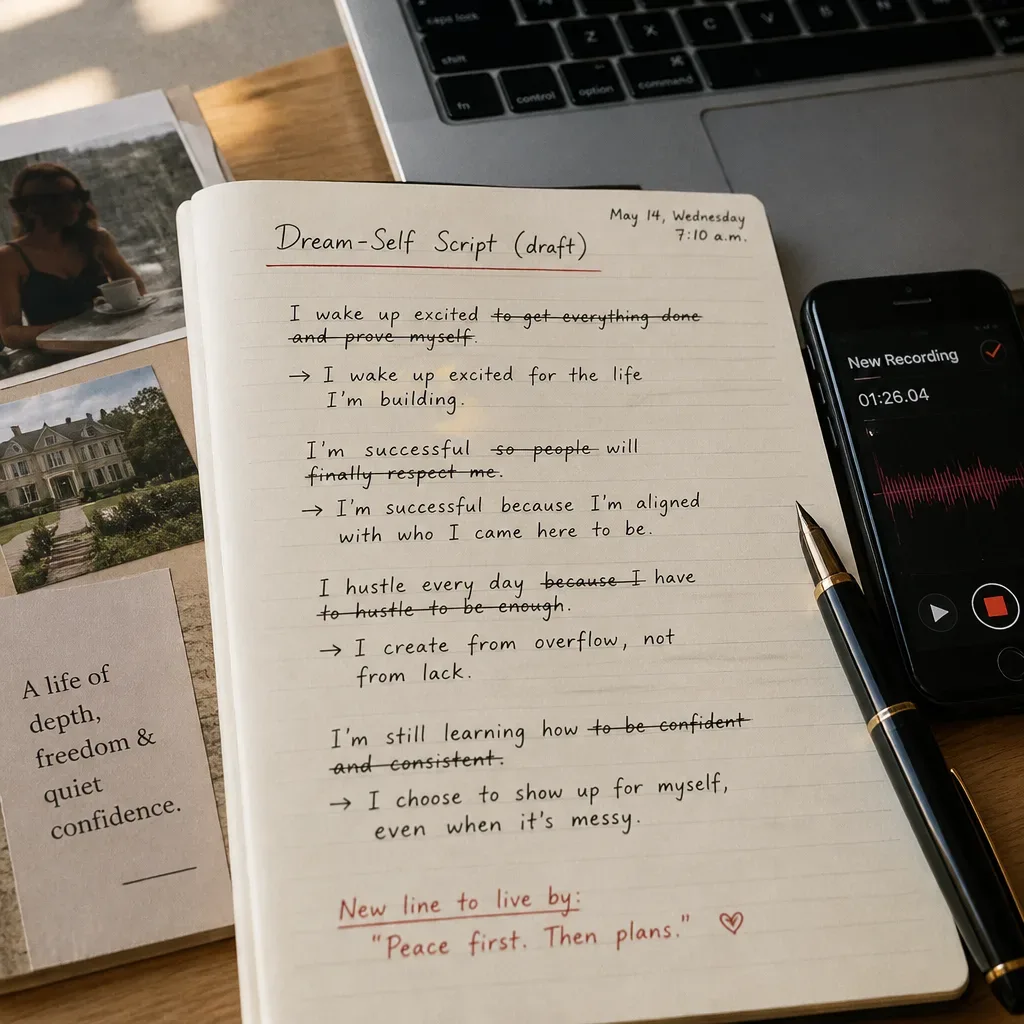 caps lock
shift
Z
X
C
V
B
N
M
fn
control
option
⌘
command
May 14, Wednesday
7:10 a.m.
Dream-Self Script (draft)
I wake up excited to get everything done
and prove myself.
→ I wake up excited for the life
I'm building.
I'm successful so people will
finally respect me.
→ I'm successful because I'm aligned
with who I came here to be.
I hustle every day because I have
to hustle to be enough.
→ I create from overflow, not
from lack.
I'm still learning how to be confident
and consistent.
→ I choose to show up for myself,
even when it's messy.
New line to live by:
"Peace first. Then plans." ♡
A life of
depth,
freedom &
quiet
confidence.
New Recording
01:26.04